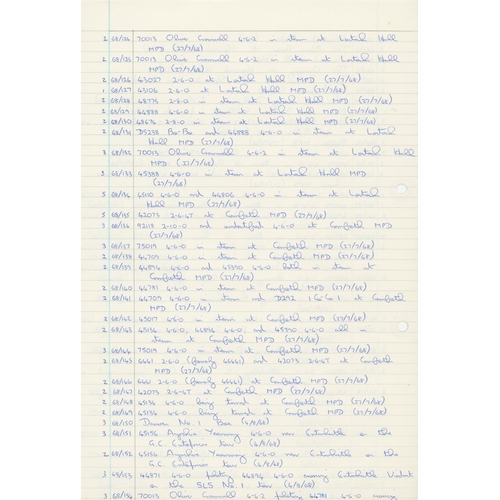 2 68/124 70013 Oliver Cromwell 4-6-2 in steam at Lostock Hall
MPD (27/7/68)
2 68/125 70013 Oliver Cromwell 4-6-2 in steam at Lostock Hall
MPD (27/7/68)
2 68/126 43027 2-6-0 at Lostock Hall MPD (27/7/68)
1 68/127 43106 2-6-0 at Lostock Hall MPD (27/7/68)
2 68/128 48773 2-8-0 in steam at Lostock Hall MPD (27/7/68)
2 68/129 44888 4-6-0 in steam at Lostock Hall MPD (27/7/68)
2 68/130 48476 2-8-0 in steam at Lostock Hall MPD (27/7/68)
2 68/131 D5238 Bo-Bo and 44888 4-6-0 in steam at Lostock
Hall MPD (27/7/68)
3 68/132 70013 Oliver Cromwell 4-6-2 in steam at Lostock Hall
MPD (27/7/68)
3 68/133 45388 4-6-0 in steam at Lostock Hall MPD
(27/7/68)
5 68/134 45110 4-6-0 and 44806 4-6-0 in steam at Lostock
Hall MPD (27/7/68)
5 68/135 42073 2-6-4T at Carnforth MPD (27/7/68)
3 68/136 92118 2-10-0 and unidentified 4-6-0 at Carnforth MPD
(27/7/68)
3 68/137 75019 4-6-0 in steam at Carnforth MPD (27/7/68)
2 68/138 44709 4-6-0 in steam at Carnforth MPD (27/7/68)
2 68/139 44894 4-6-0 and 45390 4-6-0 both in steam at
Carnforth MPD (27/7/68)
2 68/140 44781 4-6-0 in steam at Carnforth MPD (27/7/68)
2 68/141 44709 4-6-0 in steam and D292 1Co-Co1 at Carnforth
MPD (27/7/68)
2 68/142 45017 4-6-0 at Carnforth MPD (27/7/68)
2 68/143 45134 4-6-0, 44894 4-6-0 and 45390 4-6-0 all in
steam at Carnforth MPD (27/7/68)
3 68/144 75019 4-6-0 in steam at Carnforth MPD (27/7/68)
2 68/145 6441 2-6-0 (formerly 46441) and 42073 2-6-4T at Carnforth
MPD (27/7/68)
2 68/146 6441 2-6-0 (formerly 46441) at Carnforth MPD (27/7/68)
2 68/147 42073 2-6-4T at Carnforth MPD (27/7/68)
2 68/148 45134 4-6-0 being turned at Carnforth MPD (27/7/68)
2 68/149 45134 4-6-0 being turned at Carnforth MPD (27/7/68)
3 68/150 Darwen No.1 Box (4/8/68)
3 68/151 45156 Ayrshire Yeomanry 4-6-0 near Entwhistle on the
G.C. Enterprises tour (4/8/68)
2 68/152 45156 Ayrshire Yeomanry 4-6-0 near Entwhistle on the
G.C. Enterprises tour (4/8/68)
3 68/153 44871 4-6-0 piloting 44894 4-6-0 crossing Entwhistle Viaduct
on the SLS No.1 tour (4/8/68)
3 68/154 70013 Oliver Cromwell 4-6-2 piloting 44781 4-6-0 crossing